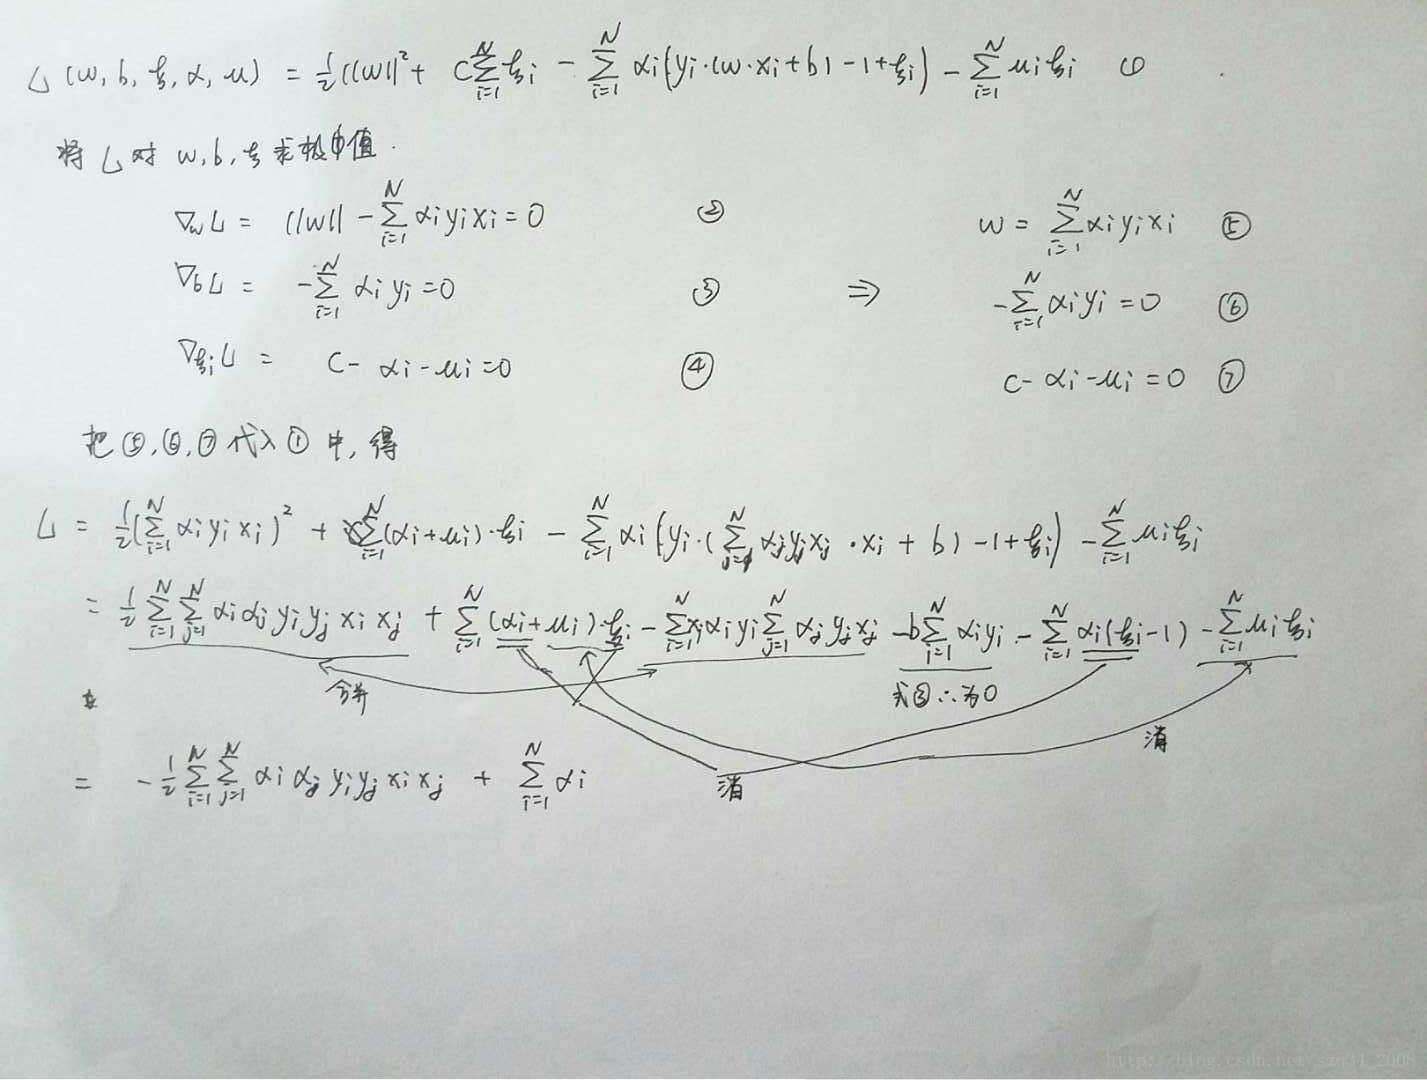 L(w, b, ξ, α, μ) = ½||w||² + C∑_{i=1}^{N} ξi - ∑_{i=1}^{N} αi(yi·(w·xi+b)-1+ξi) - ∑_{i=1}^{N} μiξi ①
将 L 对 w, b, ξ 求极小值.
∇wL = ||w|| - ∑_{i=1}^{N} αiyixi = 0 ② w = ∑_{i=1}^{N} αiyixi ⑤
∇bL = -∑_{i=1}^{N} αiyi = 0 ③ ⇒ -∑_{i=1}^{N} αiyi = 0 ⑥
∇ξiL = C - αi - μi = 0 ④ C - αi - μi = 0 ⑦
把 ⑤, ⑥, ⑦ 代入 ① 中, 得
L = ½(∑_{i=1}^{N} αiyixi)² + ∑_{i=1}^{N}(αi+μi)·ξi - ∑_{i=1}^{N} αi(yi·(∑_{j=1}^{N} αjyjxj·xi+b)-1+ξi) - ∑_{i=1}^{N} μiξi
= ½∑_{i=1}^{N}∑_{j=1}^{N} αiαjyiyjxixj + ∑_{i=1}^{N}(αi+μi)·ξi - ∑_{i=1}^{N} xiαiyi∑_{j=1}^{N} αjyjxj - b∑_{i=1}^{N} αiyi - ∑_{i=1}^{N} αi(ξi-1) - ∑_{i=1}^{N} μiξi
合并 式③∴为0
消
= -½∑_{i=1}^{N}∑_{j=1}^{N} αiαjyiyjxixj + ∑_{i=1}^{N} αi 消